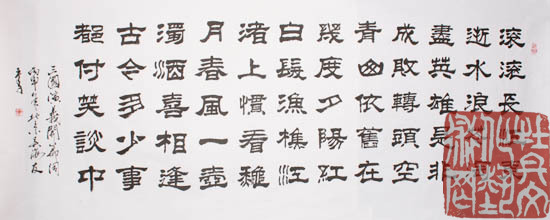 滚滚長江東
逝水浪花淘
盡英雄是非
成敗轉頭空
青山依舊在
幾度夕陽紅
白髮漁樵江
渚上慣看龝
月春風一壺
濁酒喜相逢
古今多少事
都付笑談中
三國演義開篇詞
丙申